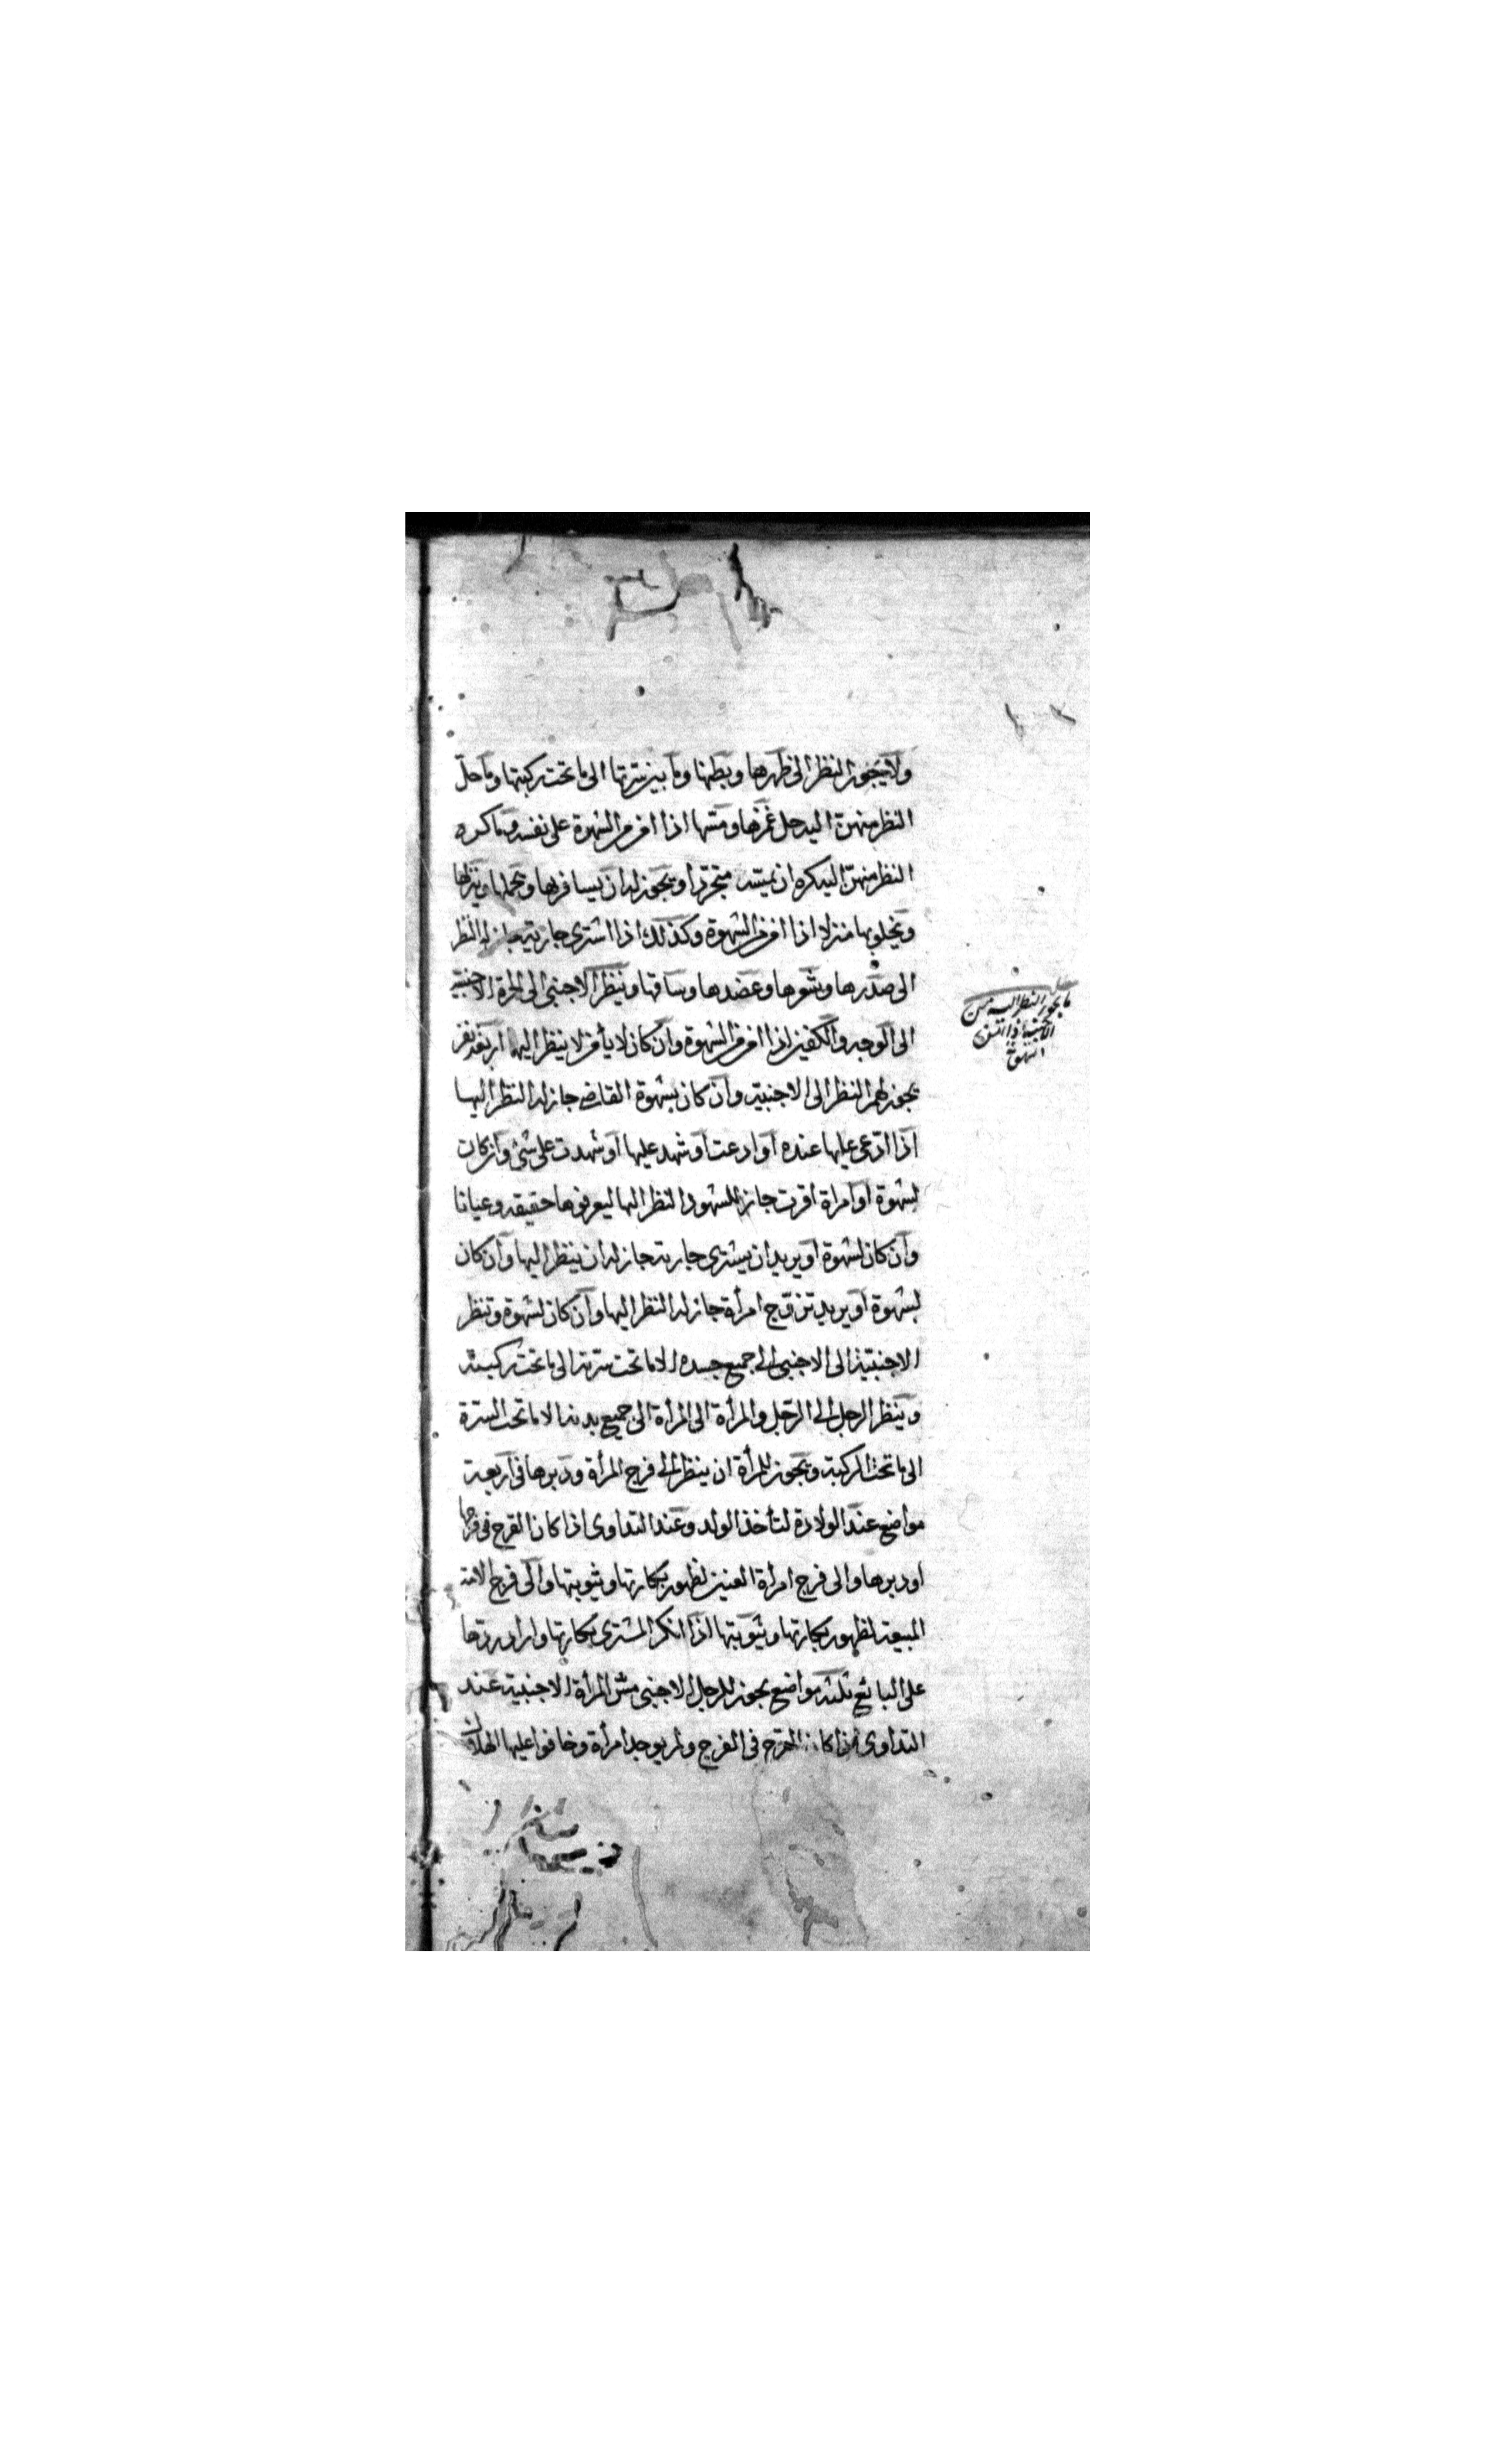 ولا يجوز النظر الى ظهرها وبطنها وما بين سرتها الى ما تحت ركبتها وما حل
النظر منهن اليه حل غمزها ومسها اذا امن من الشهوة على نفسه وما كره
النظر منهن اليه كره ان يمسه متجردا ويجوز له ان يسافر بها ويحملها وينزلها
ويخلو بها منزلا اذا امن من الشهوة وكذلك اذا اشترى جارية جاز له النظر
الى صدرها وشعرها وعضدها وساقها وينظر الاجنبى الى الحرة الاجنبية
الى الوجه والكفين اذا امن من الشهوة وان كان لا يأمن لا ينظر اليها اربعة نفر
يجوز لهم النظر الى الاجنبية وان كان بشهوة القاضى جاز له النظر اليها
اذا ادعى عليها عنده او ادعت او شهد عليها او شهدت على شئ وان كان
بشهوة او امراة اقرت جاز للشهود النظر اليها ليعرفوها حقيقة وعيانا
وان كان لشهوة او يريد ان يشترى جارية جاز له ان ينظر اليها وان كان
بشهوة او يريد تزوج امرأة جاز له النظر اليها وان كان لشهوة وتنظر
الاجنبية الى الاجنبى الى جميع جسده الا ما تحت سرته الى ما تحت ركبته
وينظر الرجل الى الرجل والمرأة الى المرأة الى جميع بدنه الا ما تحت السرة
الى ما تحت الركبة ويجوز للمرأة ان ينظر الى فرج المرأة ودبرها فى اربعة
مواضع عند الولادة لتأخذ الولد وعند التداوى اذا كان القرح فى فرجها
او دبرها والى فرج امرأة العنين لظهور بكارتها وثيوبتها والى فرج الامة
المبيعة لظهور بكارتها وثيوبتها اذا انكر المشترى بكارتها واراد ردها
على البائع ثلثة مواضع يجوز للرجل الاجنبى مس المرأة الاجنبية عند
التداوى اذا كان القرح فى الفرج ولم يوجد امرأة وخافوا عليها الهلاك
ما يجوز النظر اليه من
الاجنبية اذا امن
الشهوة